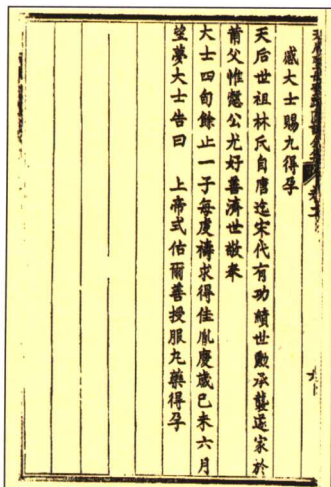 感大士賜九得孕
天后世祖林氏自唐迄宋代有功績世勳承襲遂家於
莆父惟慤公尤好善濟世敬奉
大士四旬餘止一子每虔禱求得佳胤慶歲己未六月
望夢大士告曰　上帝式佑爾善授服丸藥得孕